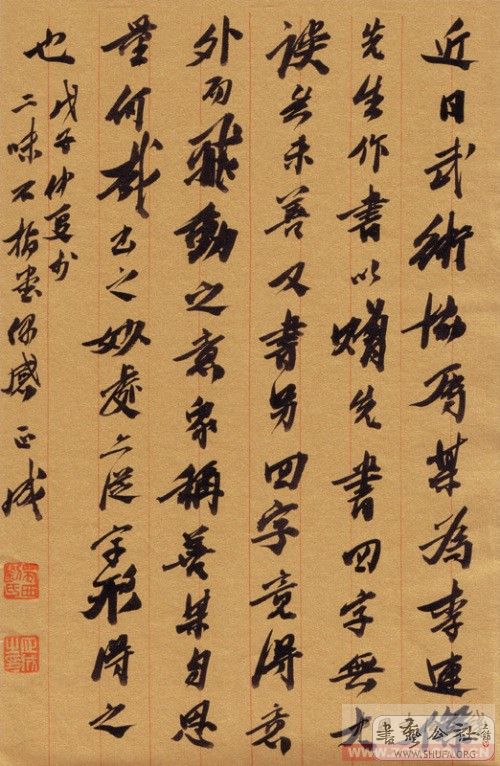 近日武術協屬某為李連
先生作書以贈先書四字無大
然未善又書另四字竟得意
外而飛動之意衆稱善某自思
量何哉之妙處亦從字形得之
也
戊子仲夏於
二味堂偶感 正成
書藝公社
WWW.SHUFA.ORG